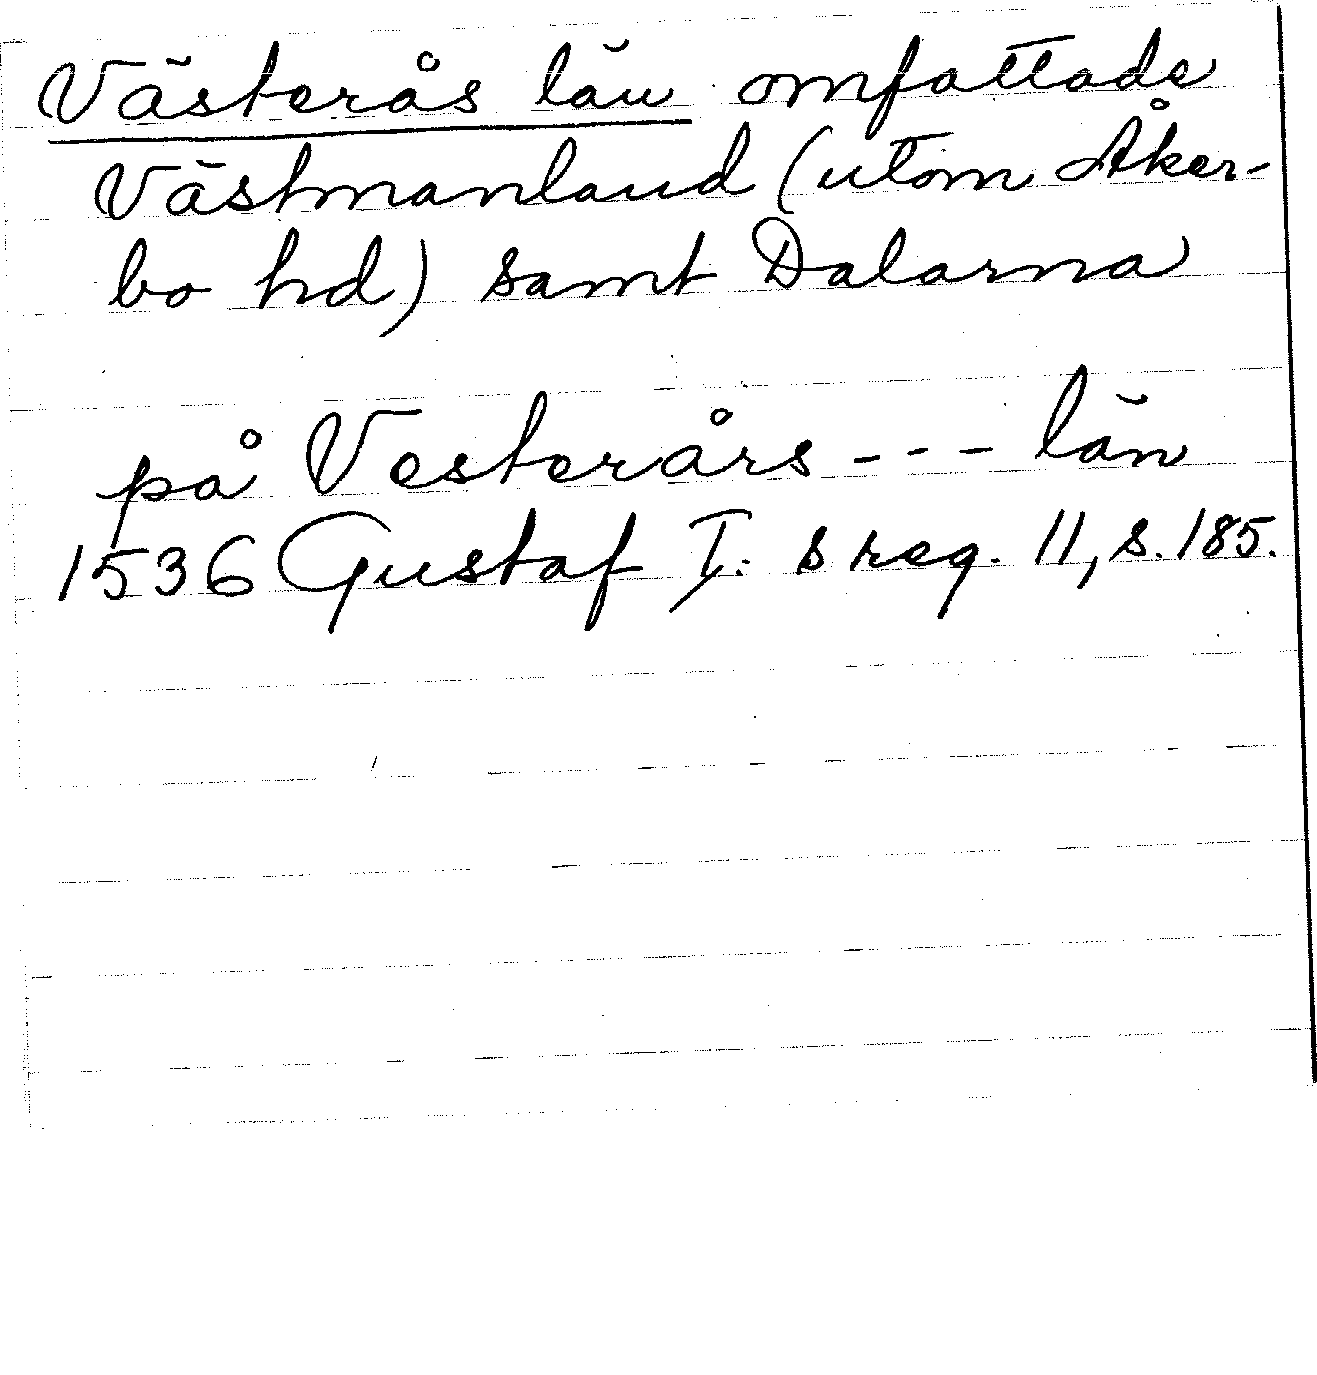 Västerås län omfattade
Västmanland (utom Åker-
bo hd) samt Dalarna
på Vesterårs --- län
1536 Gustaf I:s reg. 11, s. 185.